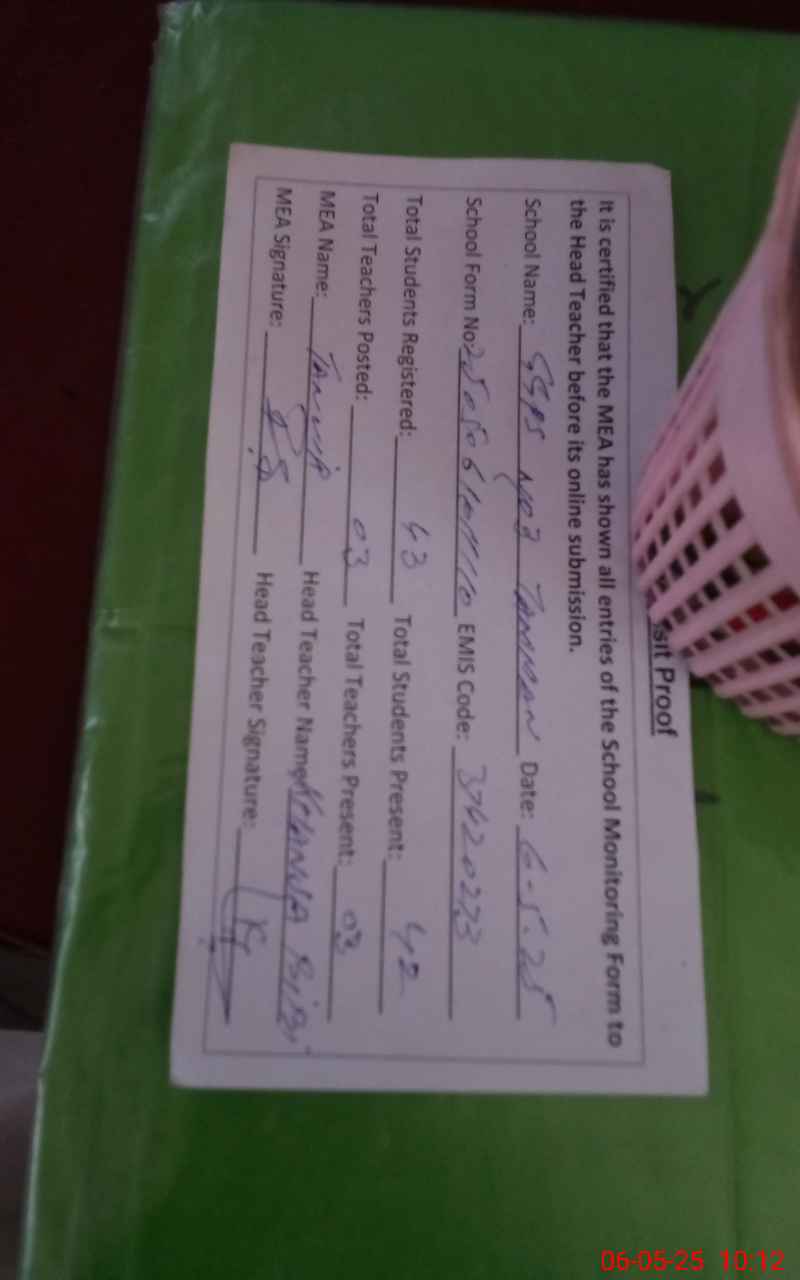 sit Proof
It is certified that the MEA has shown all entries of the School Monitoring Form to
the Head Teacher before its online submission.
School Name: GGPS No 2 Date: 6-5-25
School Form No: EMIS Code: 37420273
Total Students Registered: 43 Total Students Present: 42
Total Teachers Posted: 03 Total Teachers Present: 03
MEA Name: Head Teacher Name: Bibi
MEA Signature: Head Teacher Signature:
06-05-25 10:12